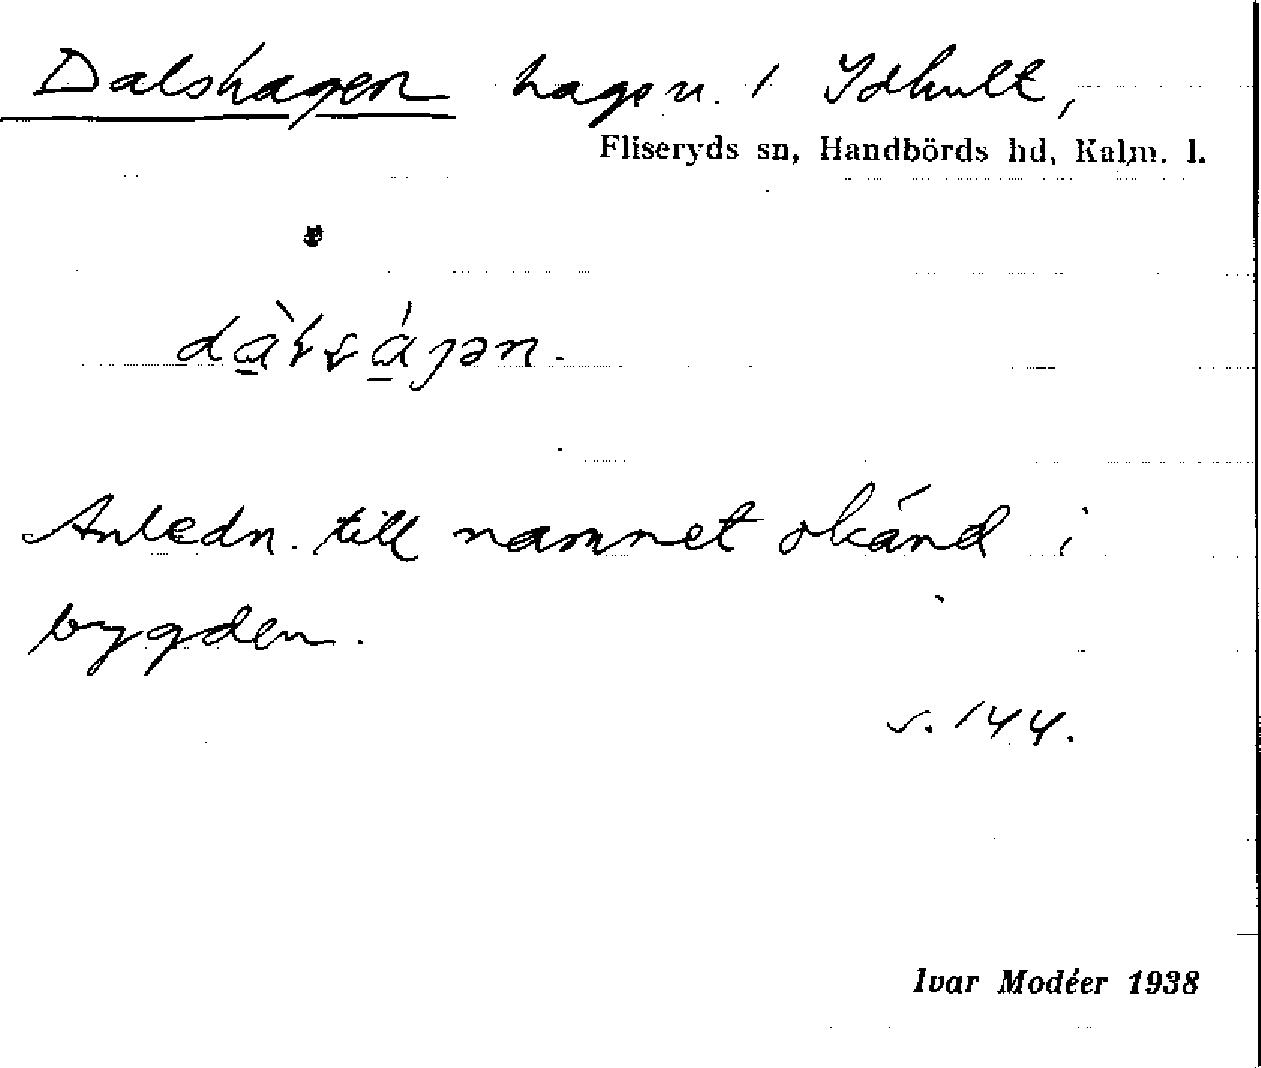 Dalshagen hagsn. i Idhult,
Fliseryds sn, Handbörds hd, Kalm. l.
Anledn. till namnet okänd i
bygden.
s. 144.
Ivar Modéer 1938